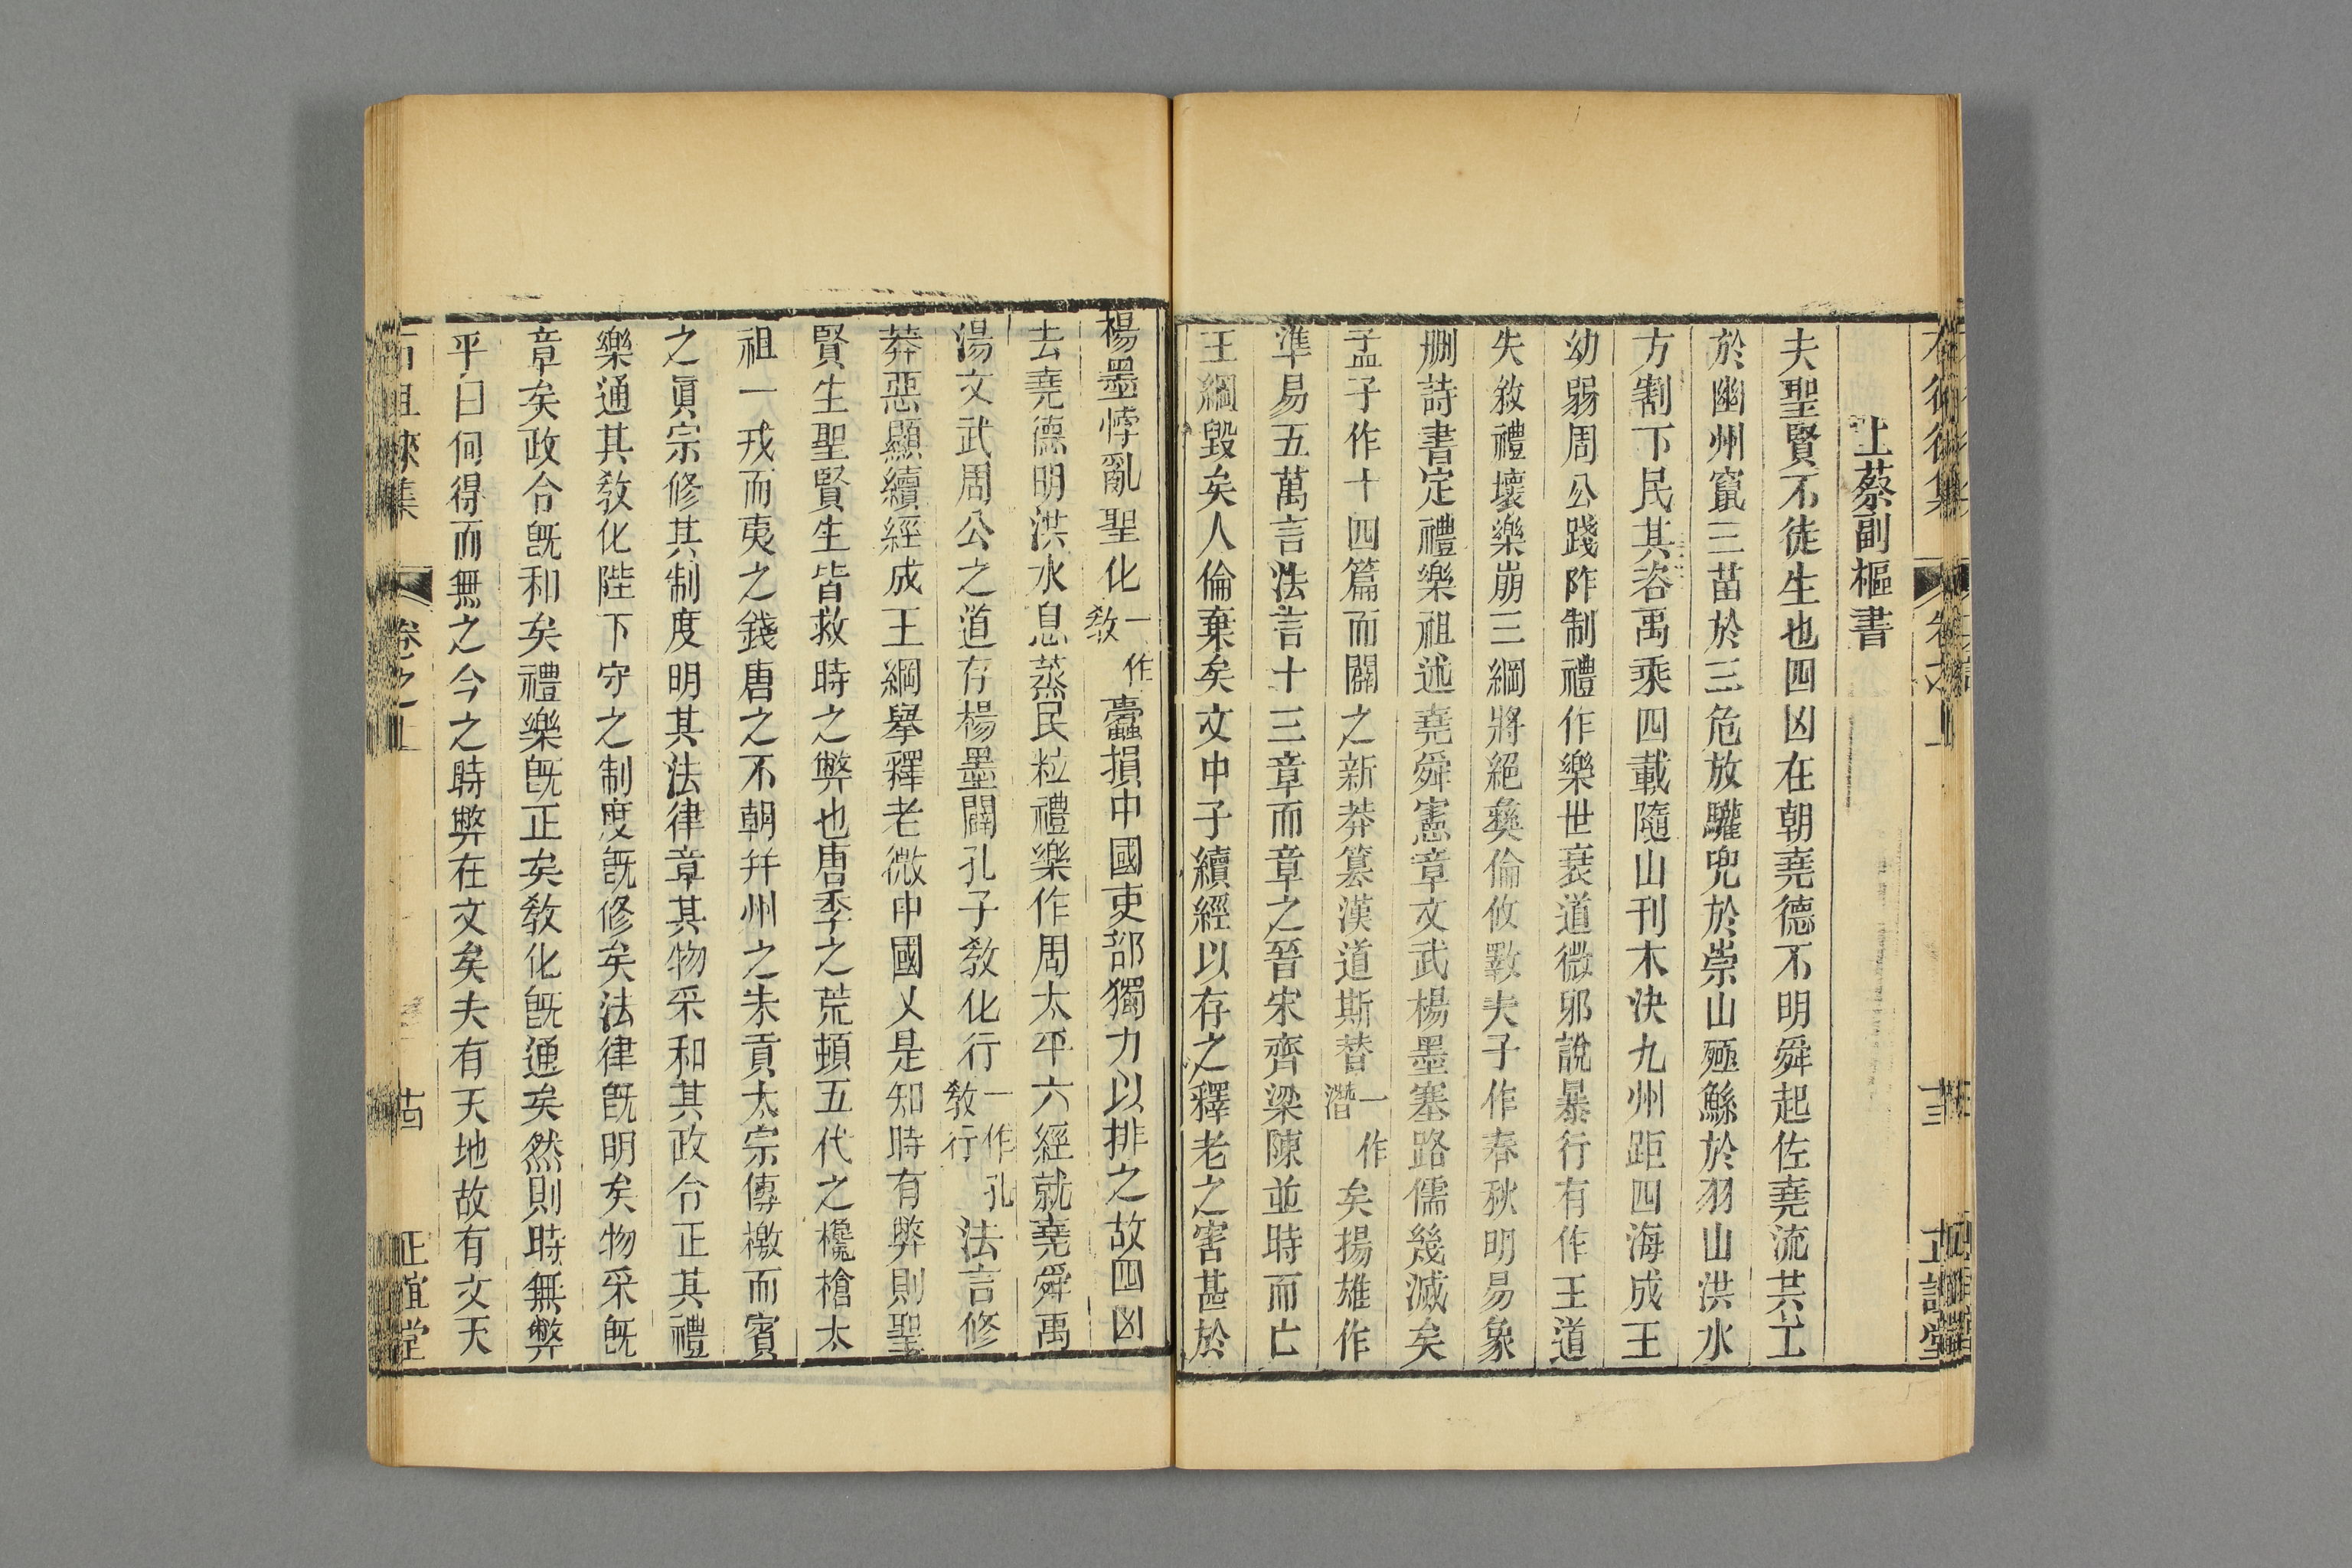 上蔡副樞書
夫聖賢不徒生也四凶在朝堯德不明舜起佐堯流共工
於幽州竄三苗於三危放驩兜於崇山殛鯀於羽山洪水
方割下民其咨禹乘四載隨山刊木決九州距四海成王
幼弱周公踐阼制禮作樂世衰道微邪說暴行有作王道
失敘禮壞樂崩三綱將絕彝倫攸斁夫子作春秋明易象
刪詩書定禮樂祖述堯舜憲章文武楊墨塞路儒幾滅矣
孟子作十四篇而闢之新莽篡漢道斯替一作潛矣揚雄作
準易五萬言法言十三章而章之晉宋齊梁陳並時而亡
王綱毀矣人倫棄矣文中子續經以存之釋老之害甚於
楊墨悖亂聖化一作教蠹損中國吏部獨力以排之故四凶
去堯德明洪水息蒸民粒禮樂作周太平六經就堯舜禹
湯文武周公之道存楊墨闢孔子教化行一作孔教行法言修
莽惡顯續經成王綱舉釋老微中國乂是知時有弊則聖
賢生聖賢生皆救時之弊也唐季之荒頓五代之欃槍太
祖一戎而夷之錢唐之不朝幷州之未貢太宗傳檄而賓
之眞宗修其制度明其法律章其物采和其政令正其禮
樂通其教化陛下守之制度旣修矣法律旣明矣物采旣
章矣政令旣和矣禮樂旣正矣教化旣通矣然則時無弊
平曰何得而無之今之時弊在文矣夫有天地故有文天
石徂徠集 卷之上 十四 正誼堂